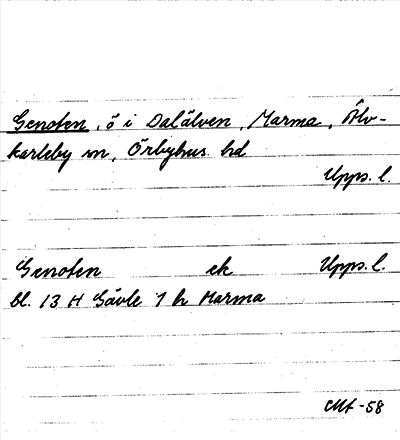 Genoten, ö i Dalälven, Marma, Älv-
karleby sn, Örbyhus hd
Upps. l.
Genoten ek Upps. l.
bl. 13 H Gävle 1 h Marma
-58